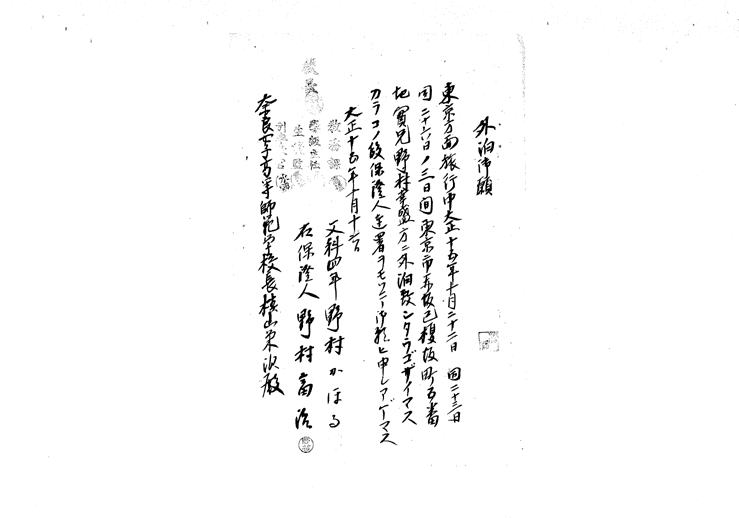 外泊御願
東京方面旅行中大正十五年十月二十二日 同二十三日
同二十六日ノ三日間東京市赤坂区榎坂町五番
地實兄野村 方ニ外泊致シタウゴザイマス
カラコノ段保證人連署ヲモツテ御願ヒ申シアゲマス
大正十五年十月十 日
文科四年 野村かほる
右保證人 野村富治
奈良女子高等師範学校長槇山栄次殿
校長
教務課